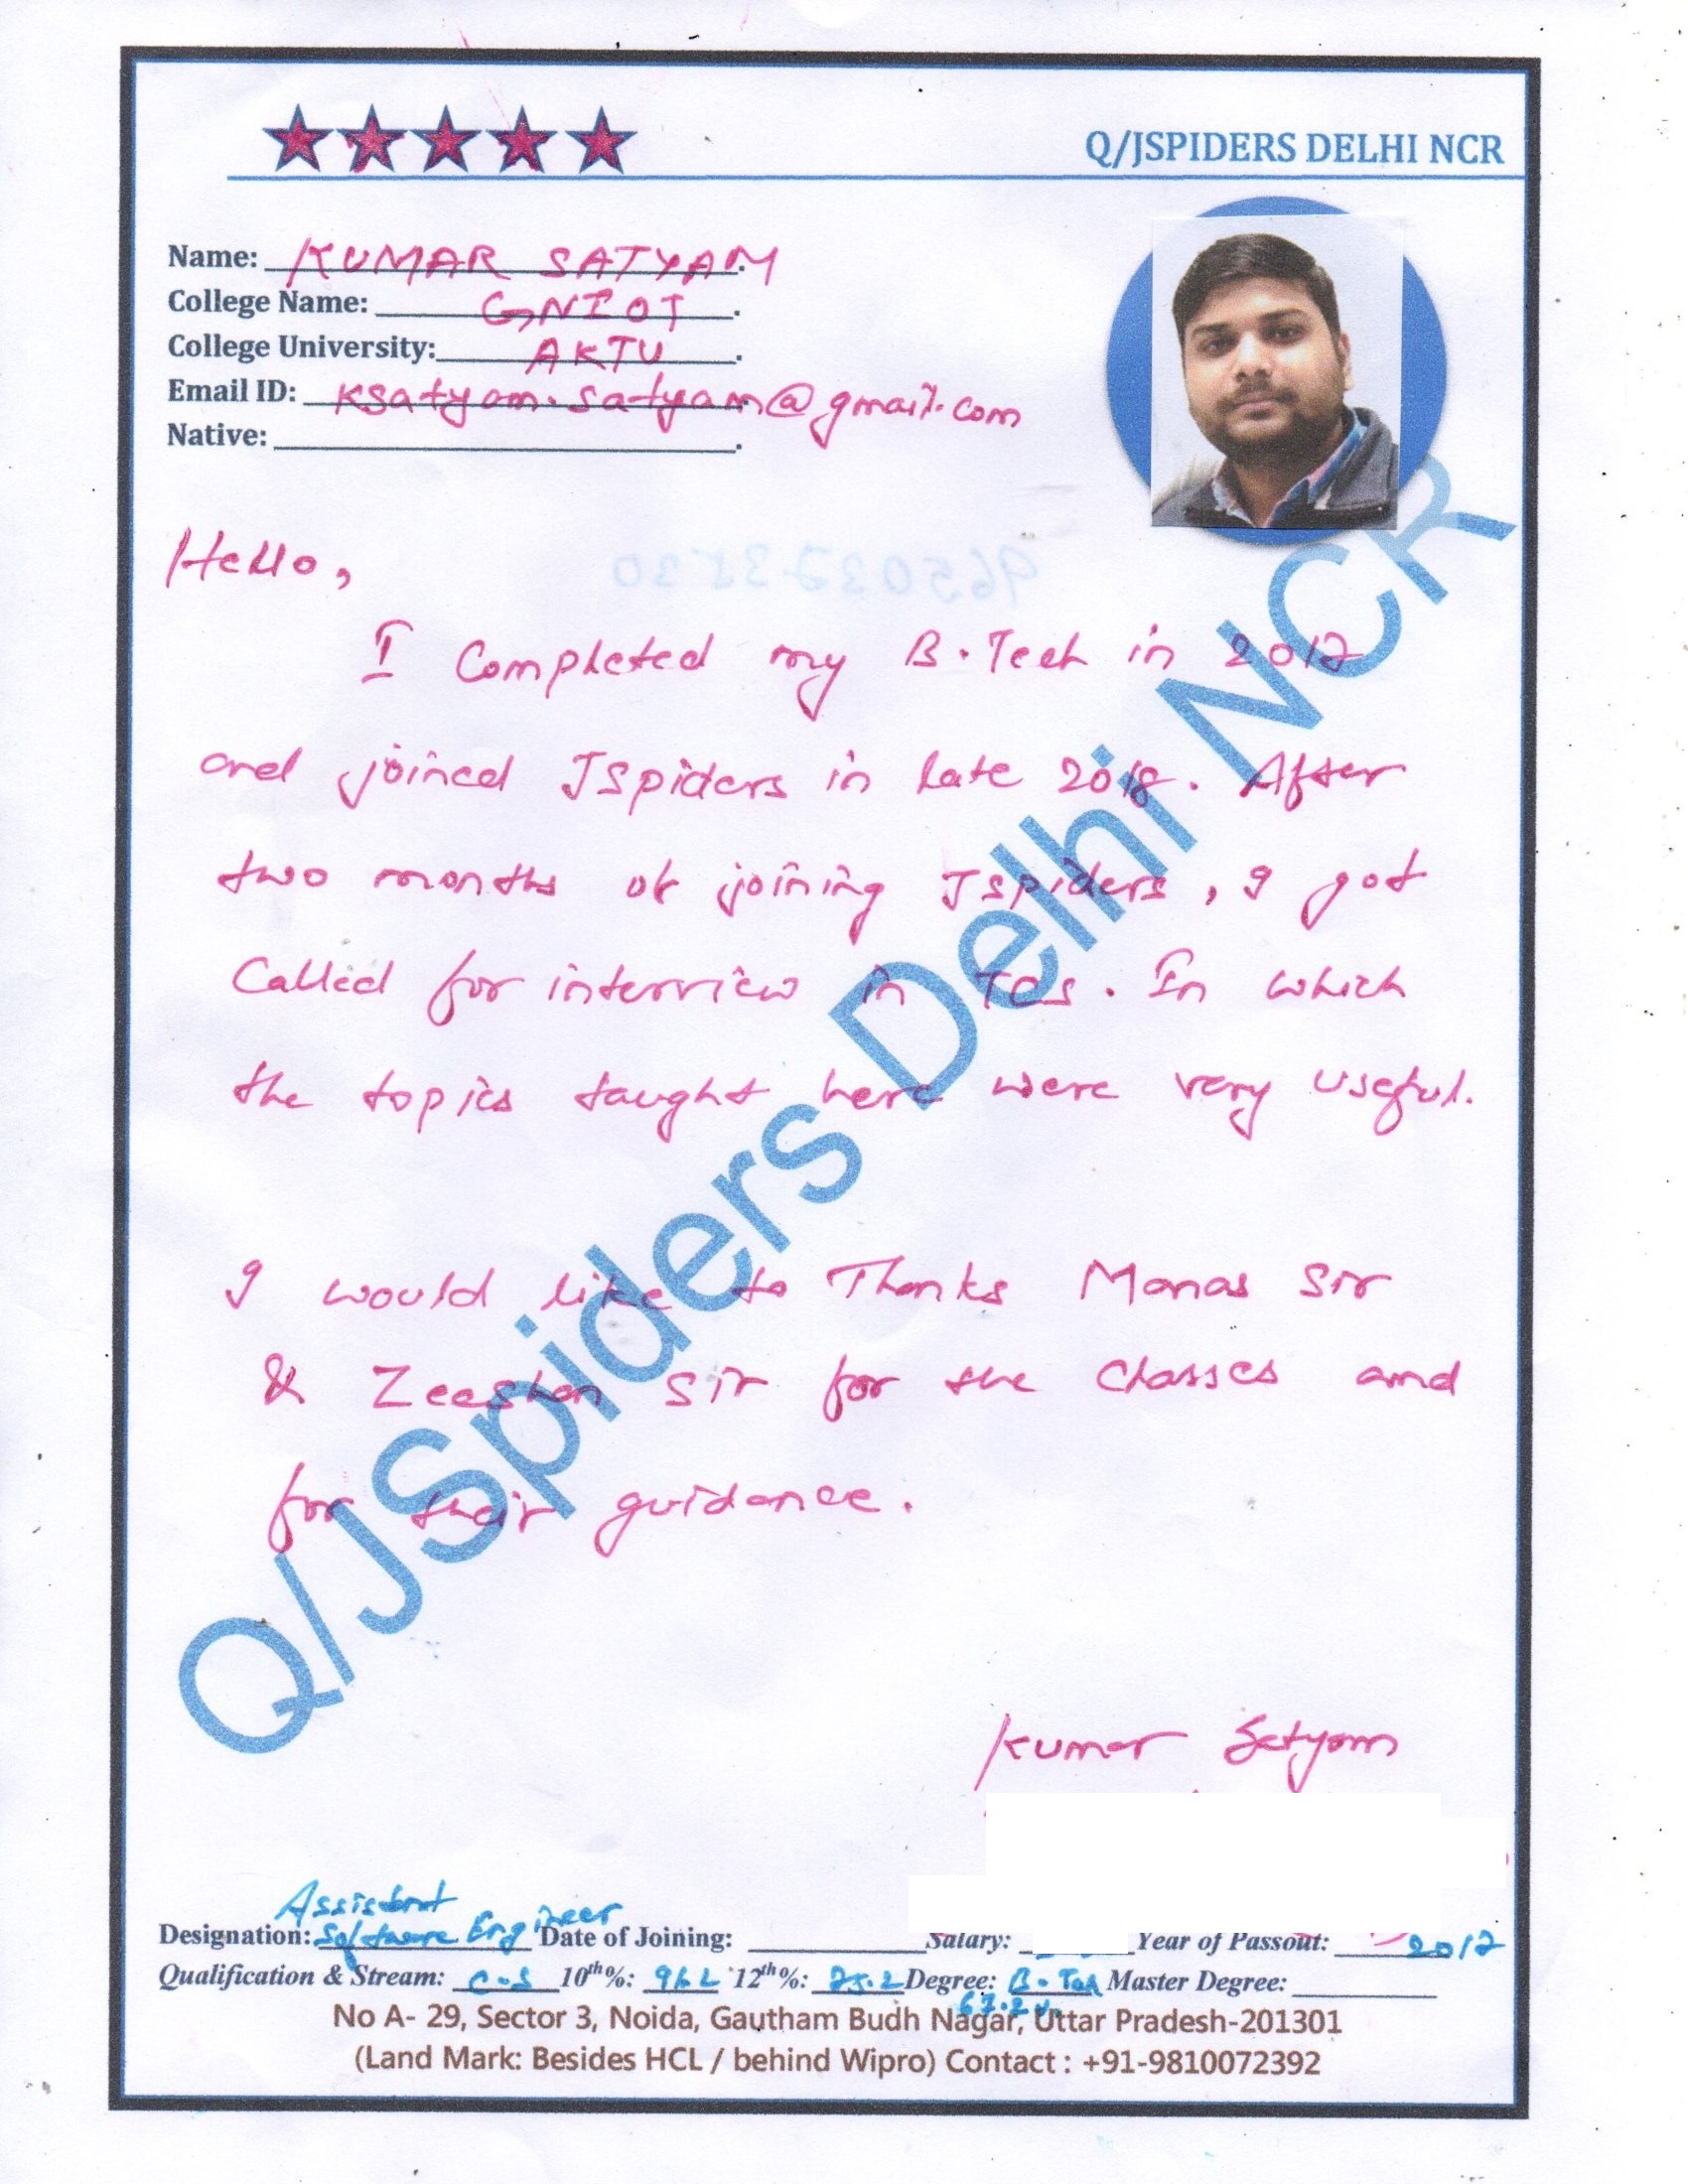 Q/JSPIDERS DELHI NCR
Name: KUMAR SATYAM.
College Name: GNIOT.
College University: AKTU.
Email ID: ksatyam.satyam@gmail.com
Native: .
Hello,
I Completed my B.Tech in 2017
and joined JSpiders in late 2018. After
two months of joining Jspiders, I got
Called for interview in TCS. In which
the topics taught here were very useful.
I would like to Thanks Manas Sir
& Zeeshan Sir for the Classes and
for their guidance.
Q/JSpiders Delhi NCR
Kumar Satyam
Assistant
Designation: Software Engineer Date of Joining: Salary: Year of Passout: 2017
Qualification & Stream: C.S 10th%: 12th%: 75.2 Degree: B.Tech Master Degree:
67.2%
No A- 29, Sector 3, Noida, Gautham Budh Nagar, Uttar Pradesh-201301
(Land Mark: Besides HCL / behind Wipro) Contact : +91-9810072392